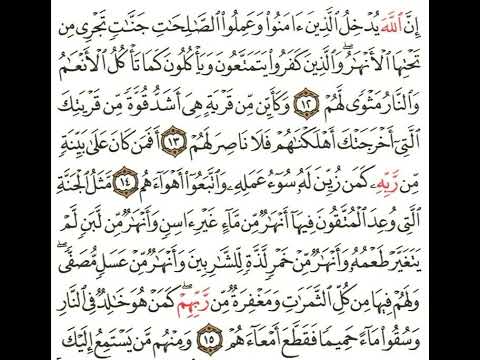 إِنَّ ٱللَّهَ يُدْخِلُ ٱلَّذِينَ ءَامَنُوا۟ وَعَمِلُوا۟ ٱلصَّٰلِحَٰتِ جَنَّٰتٍ تَجْرِى مِن
تَحْتِهَا ٱلْأَنْهَٰرُ ۖ وَٱلَّذِينَ كَفَرُوا۟ يَتَمَتَّعُونَ وَيَأْكُلُونَ كَمَا تَأْكُلُ ٱلْأَنْعَٰمُ
وَٱلنَّارُ مَثْوًى لَّهُمْ ١٢ وَكَأَيِّن مِّن قَرْيَةٍ هِىَ أَشَدُّ قُوَّةً مِّن قَرْيَتِكَ
ٱلَّتِىٓ أَخْرَجَتْكَ أَهْلَكْنَٰهُمْ فَلَا نَاصِرَ لَهُمْ ١٣ أَفَمَن كَانَ عَلَىٰ بَيِّنَةٍ
مِّن رَّبِّهِۦ كَمَن زُيِّنَ لَهُۥ سُوٓءُ عَمَلِهِۦ وَٱتَّبَعُوٓا۟ أَهْوَآءَهُم ١٤ مَّثَلُ ٱلْجَنَّةِ
ٱلَّتِى وُعِدَ ٱلْمُتَّقُونَ فِيهَآ أَنْهَٰرٌ مِّن مَّآءٍ غَيْرِ ءَاسِنٍ وَأَنْهَٰرٌ مِّن لَّبَنٍ لَّمْ
يَتَغَيَّرْ طَعْمُهُۥ وَأَنْهَٰرٌ مِّنْ خَمْرٍ لَّذَّةٍ لِّلشَّٰرِبِينَ وَأَنْهَٰرٌ مِّنْ عَسَلٍ مُّصَفًّى ۖ
وَلَهُمْ فِيهَا مِن كُلِّ ٱلثَّمَرَٰتِ وَمَغْفِرَةٌ مِّن رَّبِّهِمْ ۖ كَمَنْ هُوَ خَٰلِدٌ فِى ٱلنَّارِ
وَسُقُوا۟ مَآءً حَمِيمًا فَقَطَّعَ أَمْعَآءَهُمْ ١٥ وَمِنْهُم مَّن يَسْتَمِعُ إِلَيْكَ